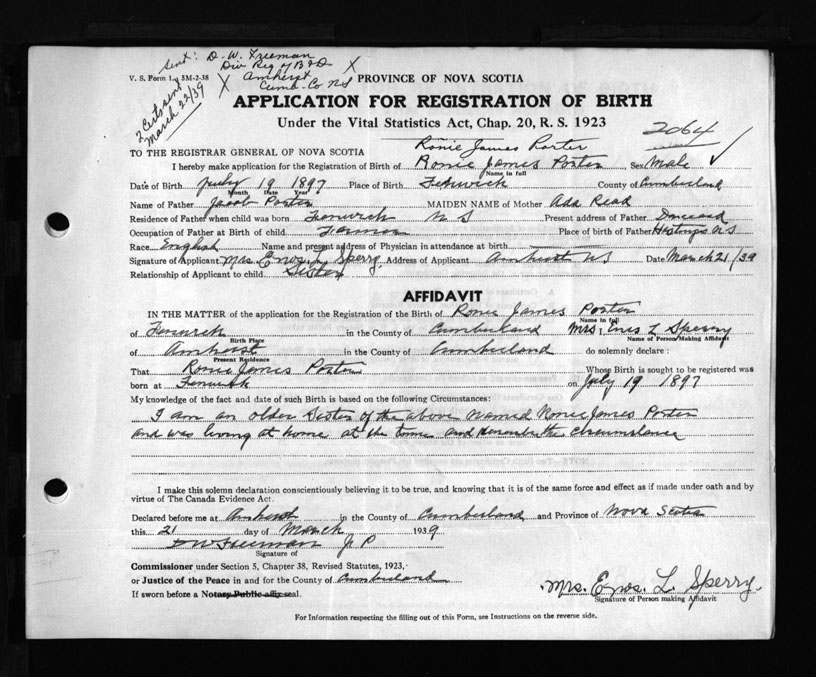 Sent: D. W. Freeman
Div Reg of B & D
X Amherst X
Cumb. Co NS
V. S. Form 1. 5M-2-38
March 22/39
PROVINCE OF NOVA SCOTIA
APPLICATION FOR REGISTRATION OF BIRTH
Under the Vital Statistics Act, Chap. 20, R. S. 1923
2064
Ronie James Porter
TO THE REGISTRAR GENERAL OF NOVA SCOTIA
I hereby make application for the Registration of Birth of Ronie James Porter Sex Male
Name in full
Date of Birth July 19 1897 Place of Birth Fenwick County of Cumberland
Month Date Year
Name of Father Jacob Porter MAIDEN NAME of Mother Ada Read
Residence of Father when child was born Fenwick N S Present address of Father Deceased
Occupation of Father at Birth of child Farmer Place of birth of Father Hastings NS
Race English Name and present address of Physician in attendance at birth
Signature of Applicant Mrs. Enos L. Sperry. Address of Applicant Amherst NS Date March 21/39
Relationship of Applicant to child Sister
AFFIDAVIT
IN THE MATTER of the application for the Registration of the Birth of Ronie James Porter
Name in full
of Fenwick in the County of Cumberland Mrs. I, Enos L Sperry
Birth Place Name of Person Making Affidavit
of Amherst in the County of Cumberland do solemnly declare :
Present Residence
That Ronie James Porter Whose Birth is sought to be registered was
born at Fenwick on July 19 1897
My knowledge of the fact and date of such Birth is based on the following Circumstances:
I am an older Sister of the above named Ronie James Porter
and was living at home at the time and remember the circumstances
I make this solemn declaration conscientiously believing it to be true, and knowing that it is of the same force and effect as if made under oath and by
virtue of The Canada Evidence Act.
Declared before me at Amherst in the County of Cumberland and Province of Nova Scotia
this 21 day of March 1939
D W Freeman J P
Signature of
Commissioner under Section 5, Chapter 38, Revised Statutes, 1923,
or Justice of the Peace in and for the County of Cumberland
Mrs. Enos. L Sperry.
Signature of Person making Affidavit
If sworn before a Notary Public affix seal.
For Information respecting the filling out of this Form, see Instructions on the reverse side.